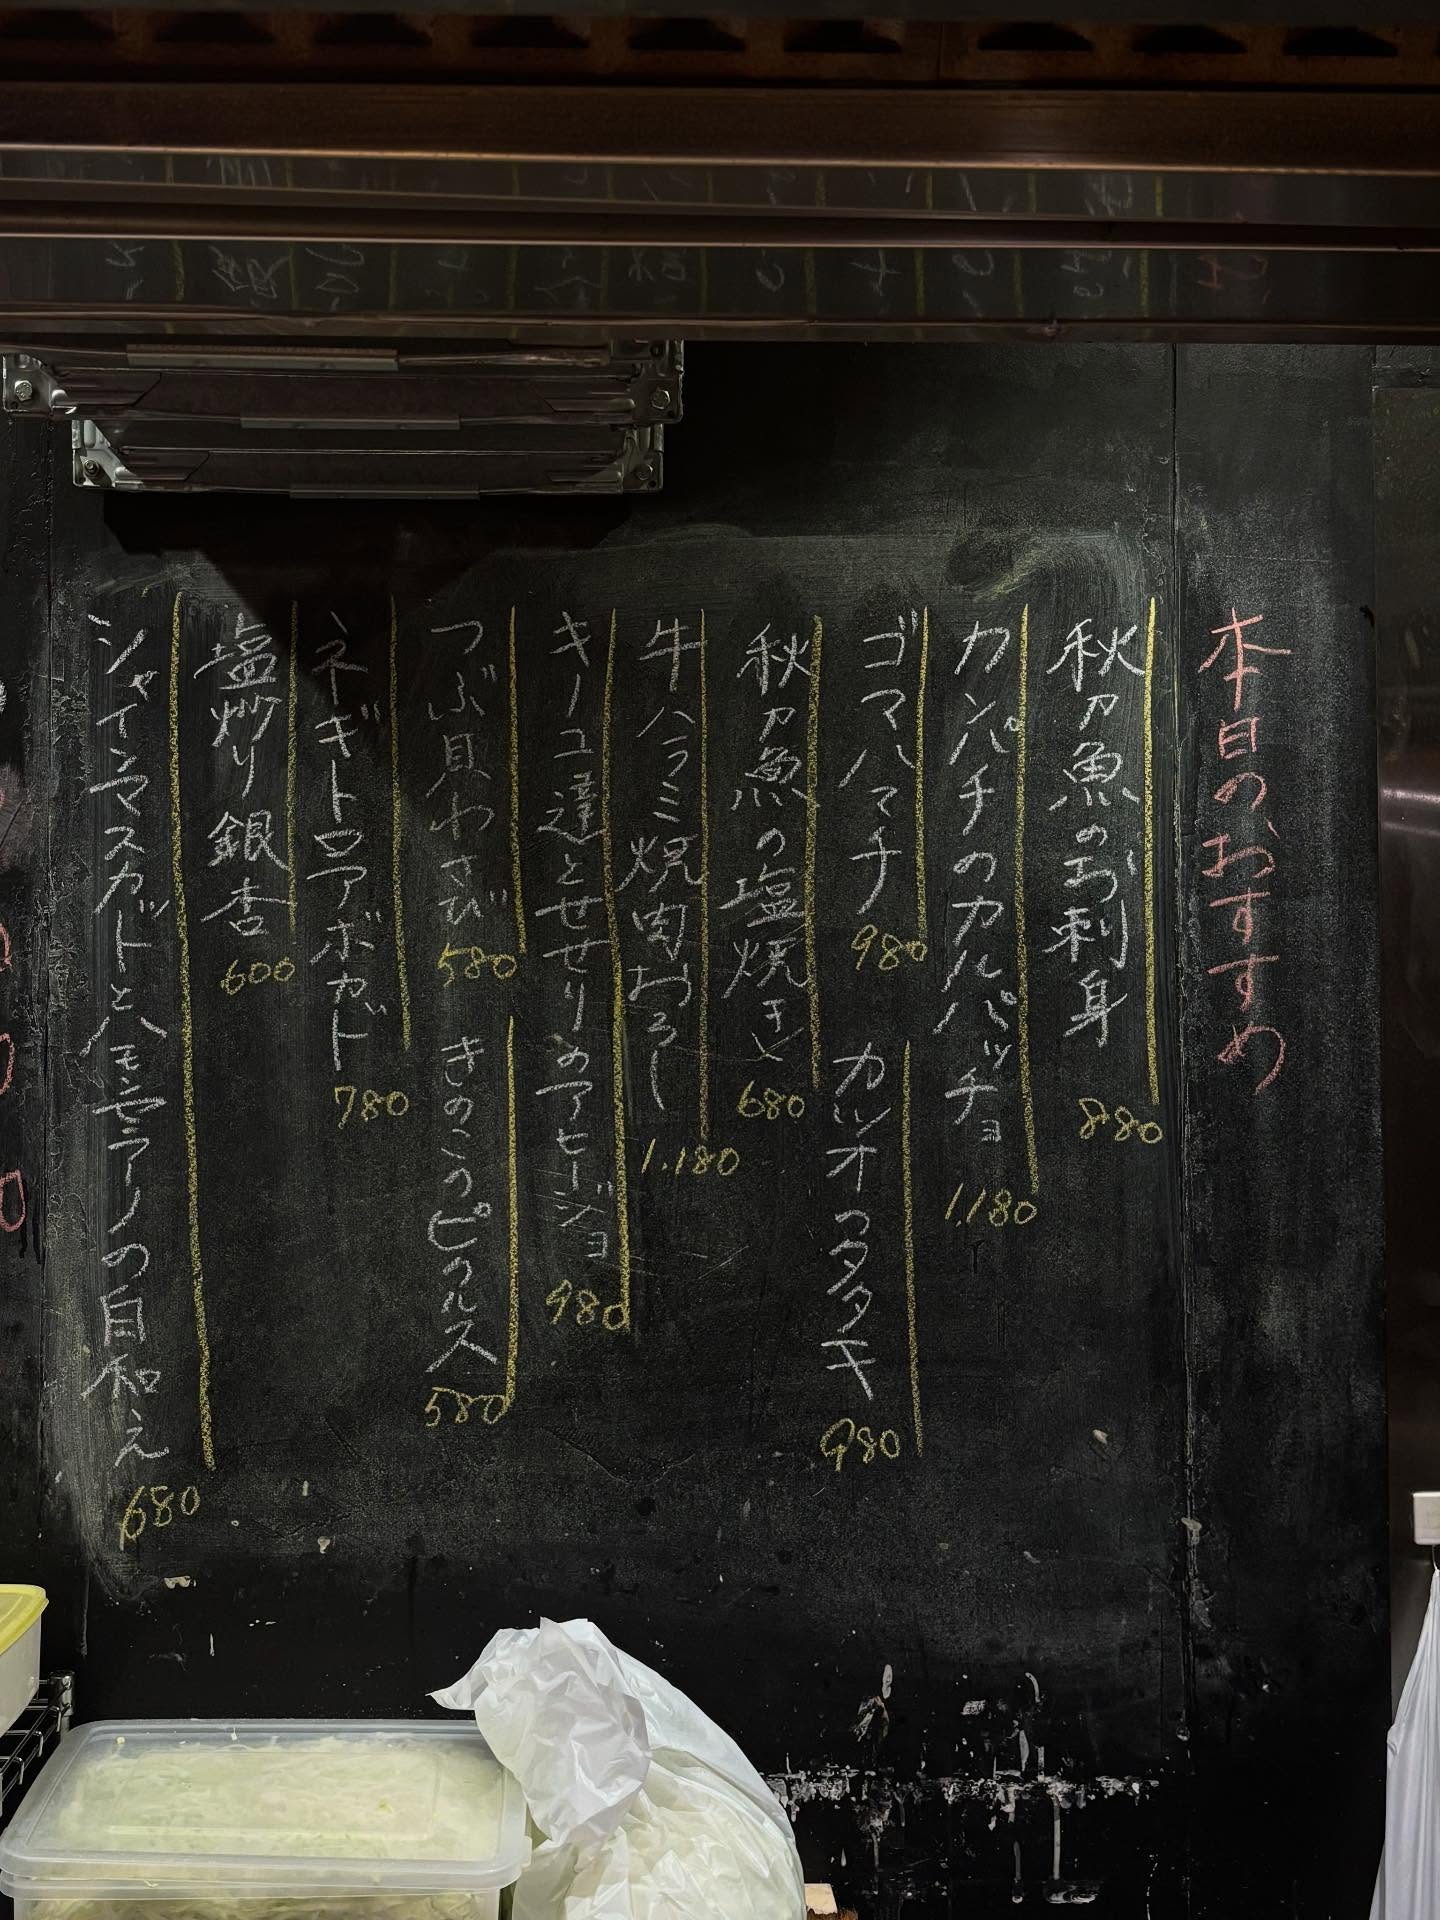 本日のおすすめ
秋刀魚のお刺身
880
カンパチのカルパッチョ
1,180
ゴマハマチ
980
カツオのタタキ
980
秋刀魚の塩焼き
680
牛ハラミ焼肉おろし
1,180
キノコ達とせせりのアヒージョ
980
つぶ貝わさび
580
きのこのピクルス
580
ネギトロアボカド
780
塩炒り銀杏
600
シャインマスカットとハモンセラーノの白和え
680